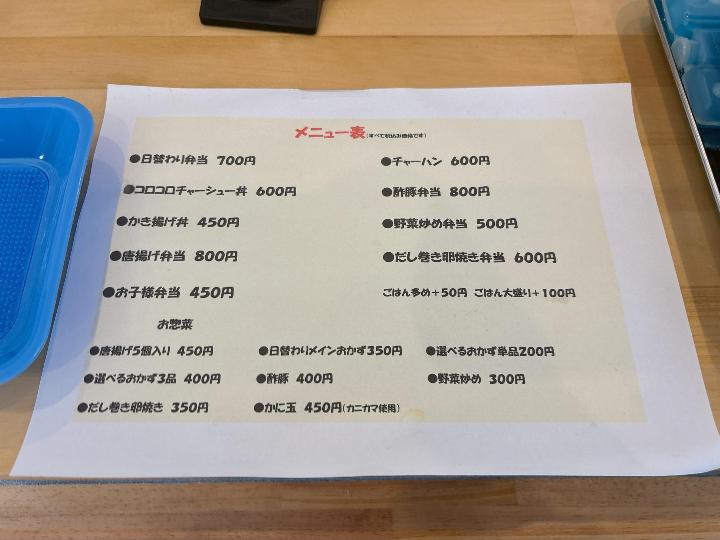 メニュー表(すべて税込み価格です)
●日替わり弁当 700円
●コロコロチャーシュー丼 600円
●かき揚げ丼 450円
●唐揚げ弁当 800円
●お子様弁当 450円
●チャーハン 600円
●酢豚弁当 800円
●野菜炒め弁当 500円
●だし巻き卵焼き弁当 600円
ごはん多め+50円 ごはん大盛り+100円
お惣菜
●唐揚げ5個入り 450円 ●日替わりメインおかず350円 ●選べるおかず単品200円
●選べるおかず3品 400円 ●酢豚 400円 ●野菜炒め 300円
●だし巻き卵焼き 350円 ●かに玉 450円(カニカマ使用)